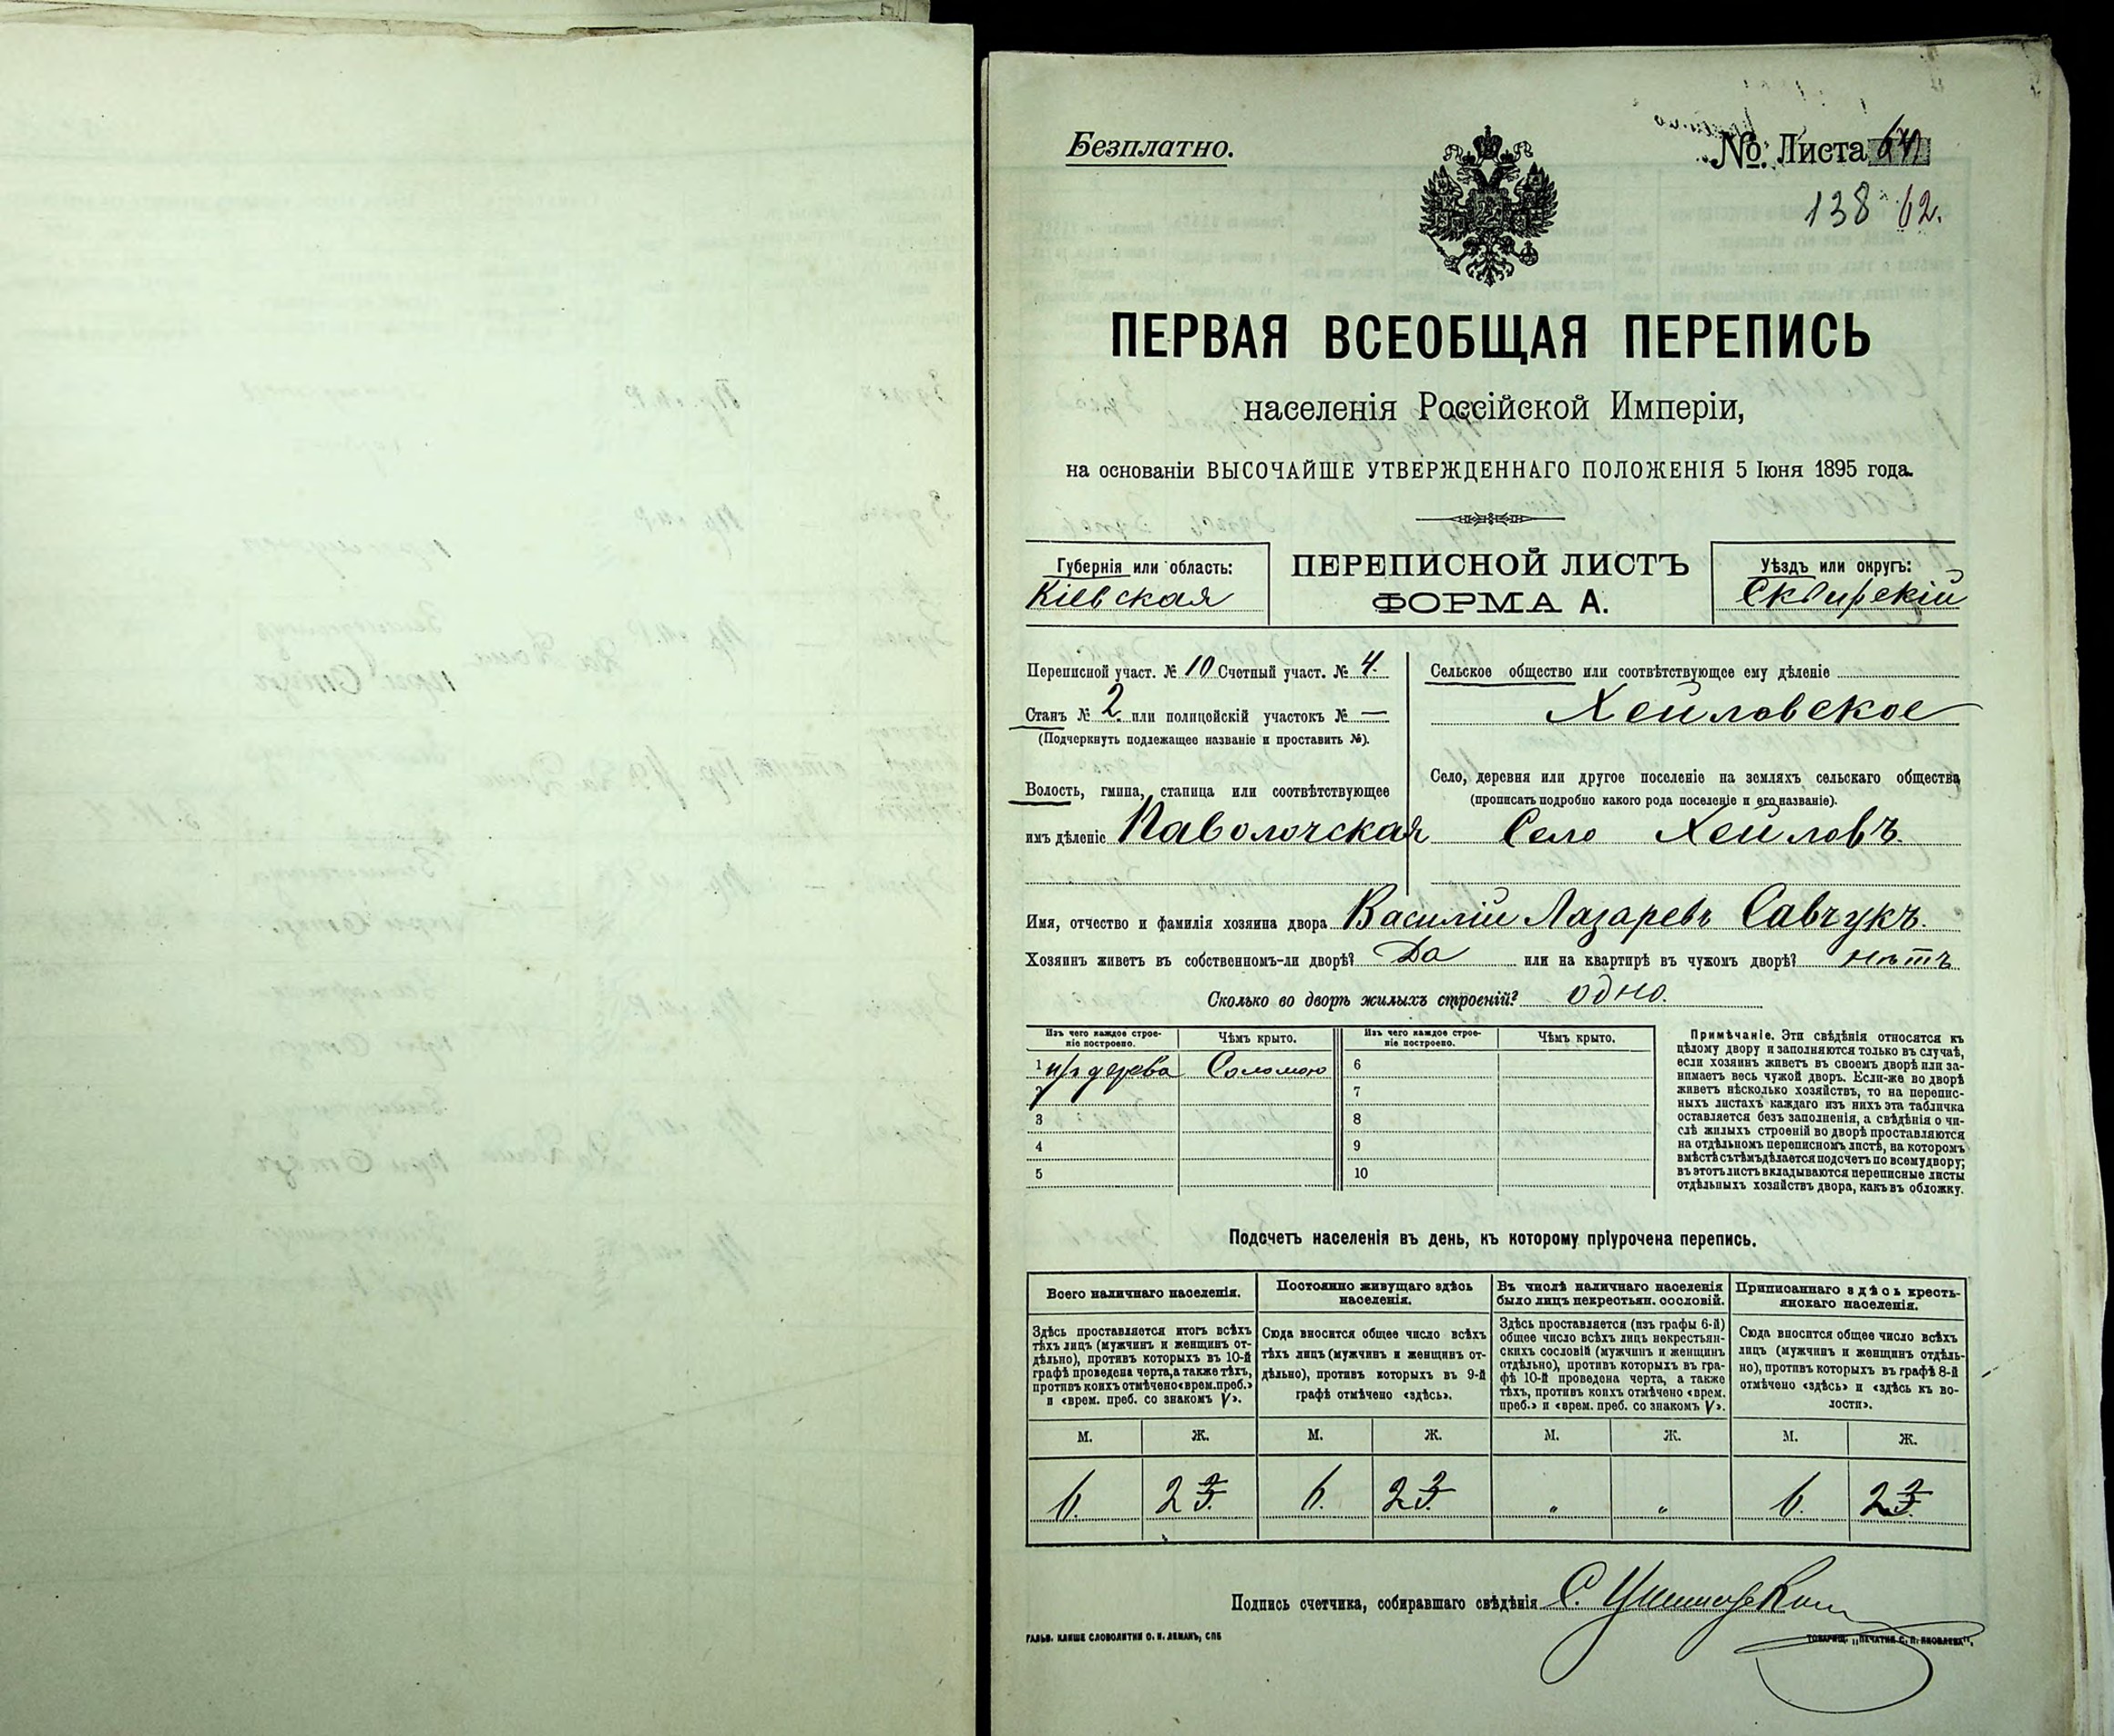 Безплатно.
№ Листа
138 62.
ПЕРВАЯ ВСЕОБЩАЯ ПЕРЕПИСЬ
населенія Россійской Имперіи,
на основаніи ВЫСОЧАЙШЕ УТВЕРЖДЕННАГО ПОЛОЖЕНІЯ 5 Іюня 1895 года.
Губернія или область:
Кіевская
ПЕРЕПИСНОЙ ЛИСТЪ
ФОРМА А.
Уѣздъ или округъ:
Сквирскій
Переписной участ. № 10 Счетный участ. № 4.
Станъ № 2. или полицейскій участокъ № —
(Подчеркнуть подлежащее названіе и проставить №).
Волость, гмина, станица или соотвѣтствующее
имъ дѣленіе Паволочская
Сельское общество или соотвѣтствующее ему дѣленіе
Хейловское
Село, деревня или другое поселеніе на земляхъ сельскаго общества
(прописать подробно какого рода поселеніе и его названіе).
Село Хейловъ.
Имя, отчество и фамилія хозяина двора Василій Лазаревъ Савчукъ.
Хозяинъ живетъ въ собственномъ-ли дворѣ? Да или на квартирѣ въ чужомъ дворѣ? нѣтъ
Сколько во дворѣ жилыхъ строеній? одно.
Изъ чего каждое строе-
ніе построено.
Чѣмъ крыто.
Изъ чего каждое строе-
ніе построено.
Чѣмъ крыто.
1 изъ дерева Соломою 6
2 7
3 8
4 9
5 10
Примѣчаніе. Эти свѣдѣнія относятся къ
цѣлому двору и заполняются только въ случаѣ,
если хозяинъ живетъ въ своемъ дворѣ или за-
нимаетъ весь чужой дворъ. Если-же во дворѣ
живетъ нѣсколько хозяйствъ, то на перепис-
ныхъ листахъ каждаго изъ нихъ эта табличка
оставляется безъ заполненія, а свѣдѣнія о чи-
слѣ жилыхъ строеній во дворѣ проставляются
на отдѣльномъ переписномъ листѣ, на которомъ
вмѣстѣ съ тѣмъ дѣлается подсчетъ по всему двору;
въ этотъ листъ вкладываются переписные листы
отдѣльныхъ хозяйствъ двора, какъ въ обложку.
Подсчетъ населенія въ день, къ которому пріурочена перепись.
Всего наличнаго населенія.
Здѣсь проставляется итогъ всѣхъ
тѣхъ лицъ (мужчинъ и женщинъ от-
дѣльно), противъ которыхъ въ 10-й
графѣ проведена черта, а также тѣхъ,
противъ коихъ отмѣчено «врем. преб.»
и «врем. преб. со знакомъ V».
Постоянно живущаго здѣсь
населенія.
Сюда вносится общее число всѣхъ
тѣхъ лицъ (мужчинъ и женщинъ от-
дѣльно), противъ которыхъ въ 9-й
графѣ отмѣчено «здѣсь».
Въ числѣ наличнаго населенія
было лицъ некрестьян. сословій.
Здѣсь проставляется (изъ графы 6-й)
общее число всѣхъ лицъ некрестьян-
скихъ сословій (мужчинъ и женщинъ
отдѣльно), противъ которыхъ въ гра-
фѣ 10-й проведена черта, а также
тѣхъ, противъ коихъ отмѣчено «врем.
преб.» и «врем. преб. со знакомъ V».
Приписаннаго здѣсь кресть-
янскаго населенія.
Сюда вносится общее число всѣхъ
лицъ (мужчинъ и женщинъ отдѣль-
но), противъ которыхъ въ графѣ 8-й
отмѣчено «здѣсь» и «здѣсь къ во-
лости».
М. Ж. М. Ж. М. Ж. М. Ж.
6. 2 6. 2 „ „ 6. 2
Подпись счетчика, собиравшаго свѣдѣнія С.
ГАЛЬВ. КЛИШЕ СЛОВОЛИТНИ О. И. ЛЕМАНЪ, СПБ
ТОВАРИЩ. „ПЕЧАТНЯ С. П. ЯКОВЛЕВА“.